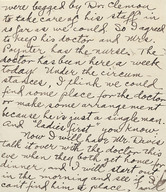 were begged by Dr. Clemon
to take care of his staff in
as far as we could. So I agreed
to keep his doctor and Mrs.
Paynter has the nurse. The
doctor has been here a week
today. Under the circum
stances, I think we could
find some place for the doctor
or make some arrangement
because he's just a single man.
and "Ladies first" you know.
Now I'll have Mr. Davis
talk it over with the other doc
tor when they both get home for
dinner and I will start out
in the morning and see if I
can't find him a place.